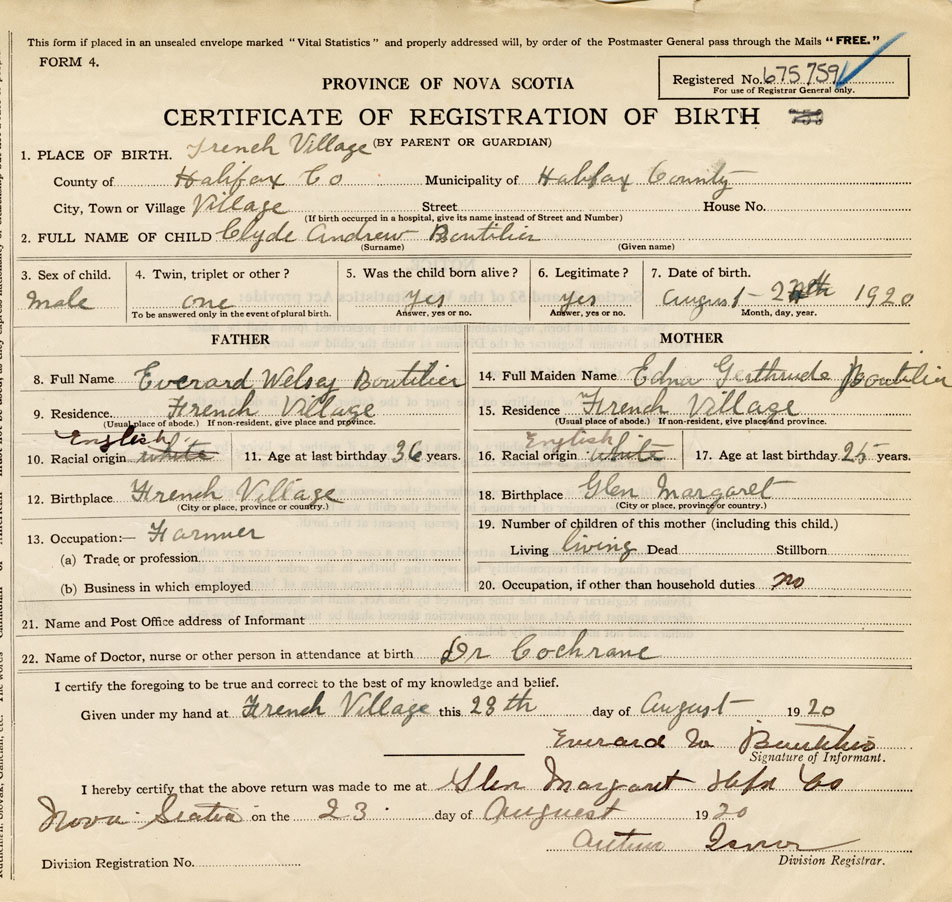 This form if placed in an unsealed envelope marked "Vital Statistics" and properly addressed will, by order of the Postmaster General pass through the Mails "FREE."
FORM 4.
Registered No. 675759
For use of Registrar General only.
PROVINCE OF NOVA SCOTIA
CERTIFICATE OF REGISTRATION OF BIRTH
(BY PARENT OR GUARDIAN)
1. PLACE OF BIRTH. French Village
County of Halifax Co Municipality of Halifax County
City, Town or Village Village Street House No.
(If birth occurred in a hospital, give its name instead of Street and Number)
2. FULL NAME OF CHILD Clyde Andrew Boutilier
(Surname) (Given name)
3. Sex of child. 4. Twin, triplet or other? 5. Was the child born alive? 6. Legitimate? 7. Date of birth.
Male one Yes Yes August - 1920
To be answered only in the event of plural birth. Answer, yes or no. Answer, yes or no. Month, day, year.
FATHER MOTHER
8. Full Name Everard Welsey Boutilier 14. Full Maiden Name Edna Gerthrude Boutilier
9. Residence. French Village 15. Residence French Village
(Usual place of abode.) If non-resident, give place and province. (Usual place of abode.) If non-resident, give place and province.
English English
10. Racial origin white 11. Age at last birthday 36 years. 16. Racial origin white 17. Age at last birthday 25 years.
12. Birthplace French Village 18. Birthplace Glen Margaret
(City or place, province or country.) (City or place, province or country.)
13. Occupation:— Farmer 19. Number of children of this mother (including this child.)
(a) Trade or profession Living living Dead Stillborn
(b) Business in which employed 20. Occupation, if other than household duties no
21. Name and Post Office address of Informant
22. Name of Doctor, nurse or other person in attendance at birth Dr Cochrane
I certify the foregoing to be true and correct to the best of my knowledge and belief.
Given under my hand at French Village this 28th day of August 1920
Everard W Boutilier
Signature of Informant.
I hereby certify that the above return was made to me at Glen Margaret Hfx Co
Nova Scotia on the 23 day of August 1920
Arthur
Division Registration No. Division Registrar.